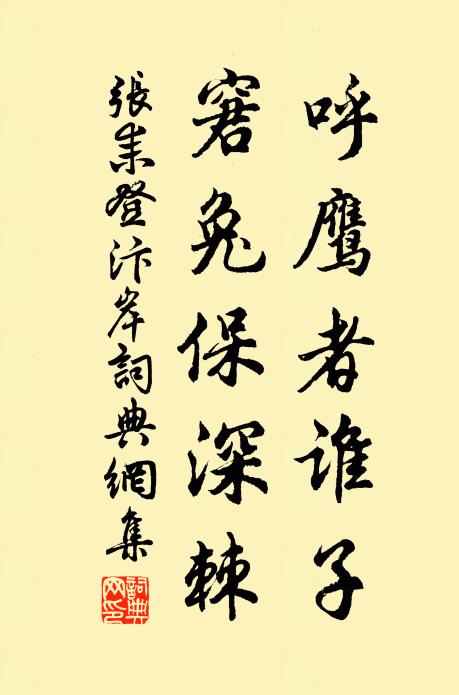 呼鹰者谁子
窘兔保深棘
張耒登汴岸詞典網集
詞典网印